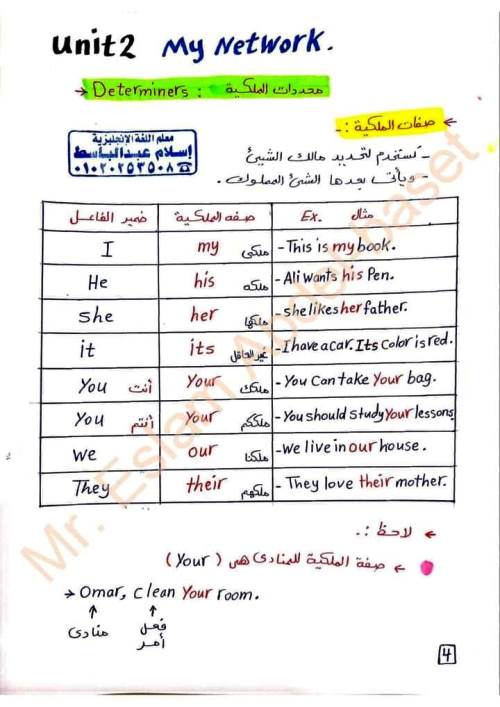 Unit2 My Network.
→ Determiners : محددات الملكية
← صفات الملكية :-
معلم اللغة الإنجليزية
إسلام عبدالباسط
☎ ٠١٠٢٠٢٥٣٥٠٨
- تستخدم لتحديد مالك الشيئ
- ويأتى بعدها الشئ المملوك.
ضمير الفاعل صفه الملكية Ex. مثال
I my ملكى - This is my book.
He his ملكه - Ali wants his Pen.
she her ملكها - she likes her father.
it its غير العاقل - I have a car. Its Color is red.
You أنت Your ملكك - You Can take Your bag.
You أنتم Your ملككم - You should study Your lessons
we our ملكنا - we live in our house.
They their ملكهم - They love their mother.
← لاحظ :.
← صفة الملكية للمنادى هى (Your)
→ Omar, clean Your room.
↑ ↑
منادى فعل
أمر
4
Mr. Eslam Abdelbaset